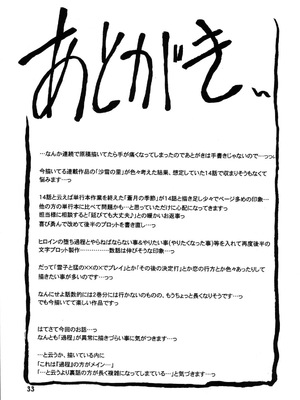 あとがき
…なんか連続で原稿描いてたら手が痛くなってしまったのであとがきは手書きじゃないので…っっ
今描いてる連載作品の「沙雪の里」が色々考えた結果、想定していた14話では収まりそうもなくて
悩みます…っ
14話と云えば単行本作業を終えた「蒼月の季節」が14話と描き足し少々でページ多めの印象…
他の方の単行本に比べて問題かも…と思っていただけに心配になってきますっ
担当様に相談すると「延びても大丈夫♪」との暖かいお返事っ
喜び勇んで改めて後半のプロットを書き直し…
ヒロインの堕ち過程とやらねばならない事＆やりたい事(やりたくなった事)等を入れて再度後半の
文字プロット製作…………数話は伸びそうな印象っ
だって「雪子と猛の××の×でプレイ」とか「その後の決定打」とか恋の行方とか色々あったりして
描きたい事が多いのです…っっ
なんにせよ話数的には2巻分には行かないものの、もうちょっと長くなりそうです…っ
でも今描いてて楽しい作品ですっ
はてさて今回のお話…っ
なんとも「過程」が異常に描きづらい事に気がつきます…っ
…と云うか、描いている内に
「これは『過程』の方がメイン…」
「…と云うより裏話の方が長く複雑になってしまている…」と気づきます…っ
33